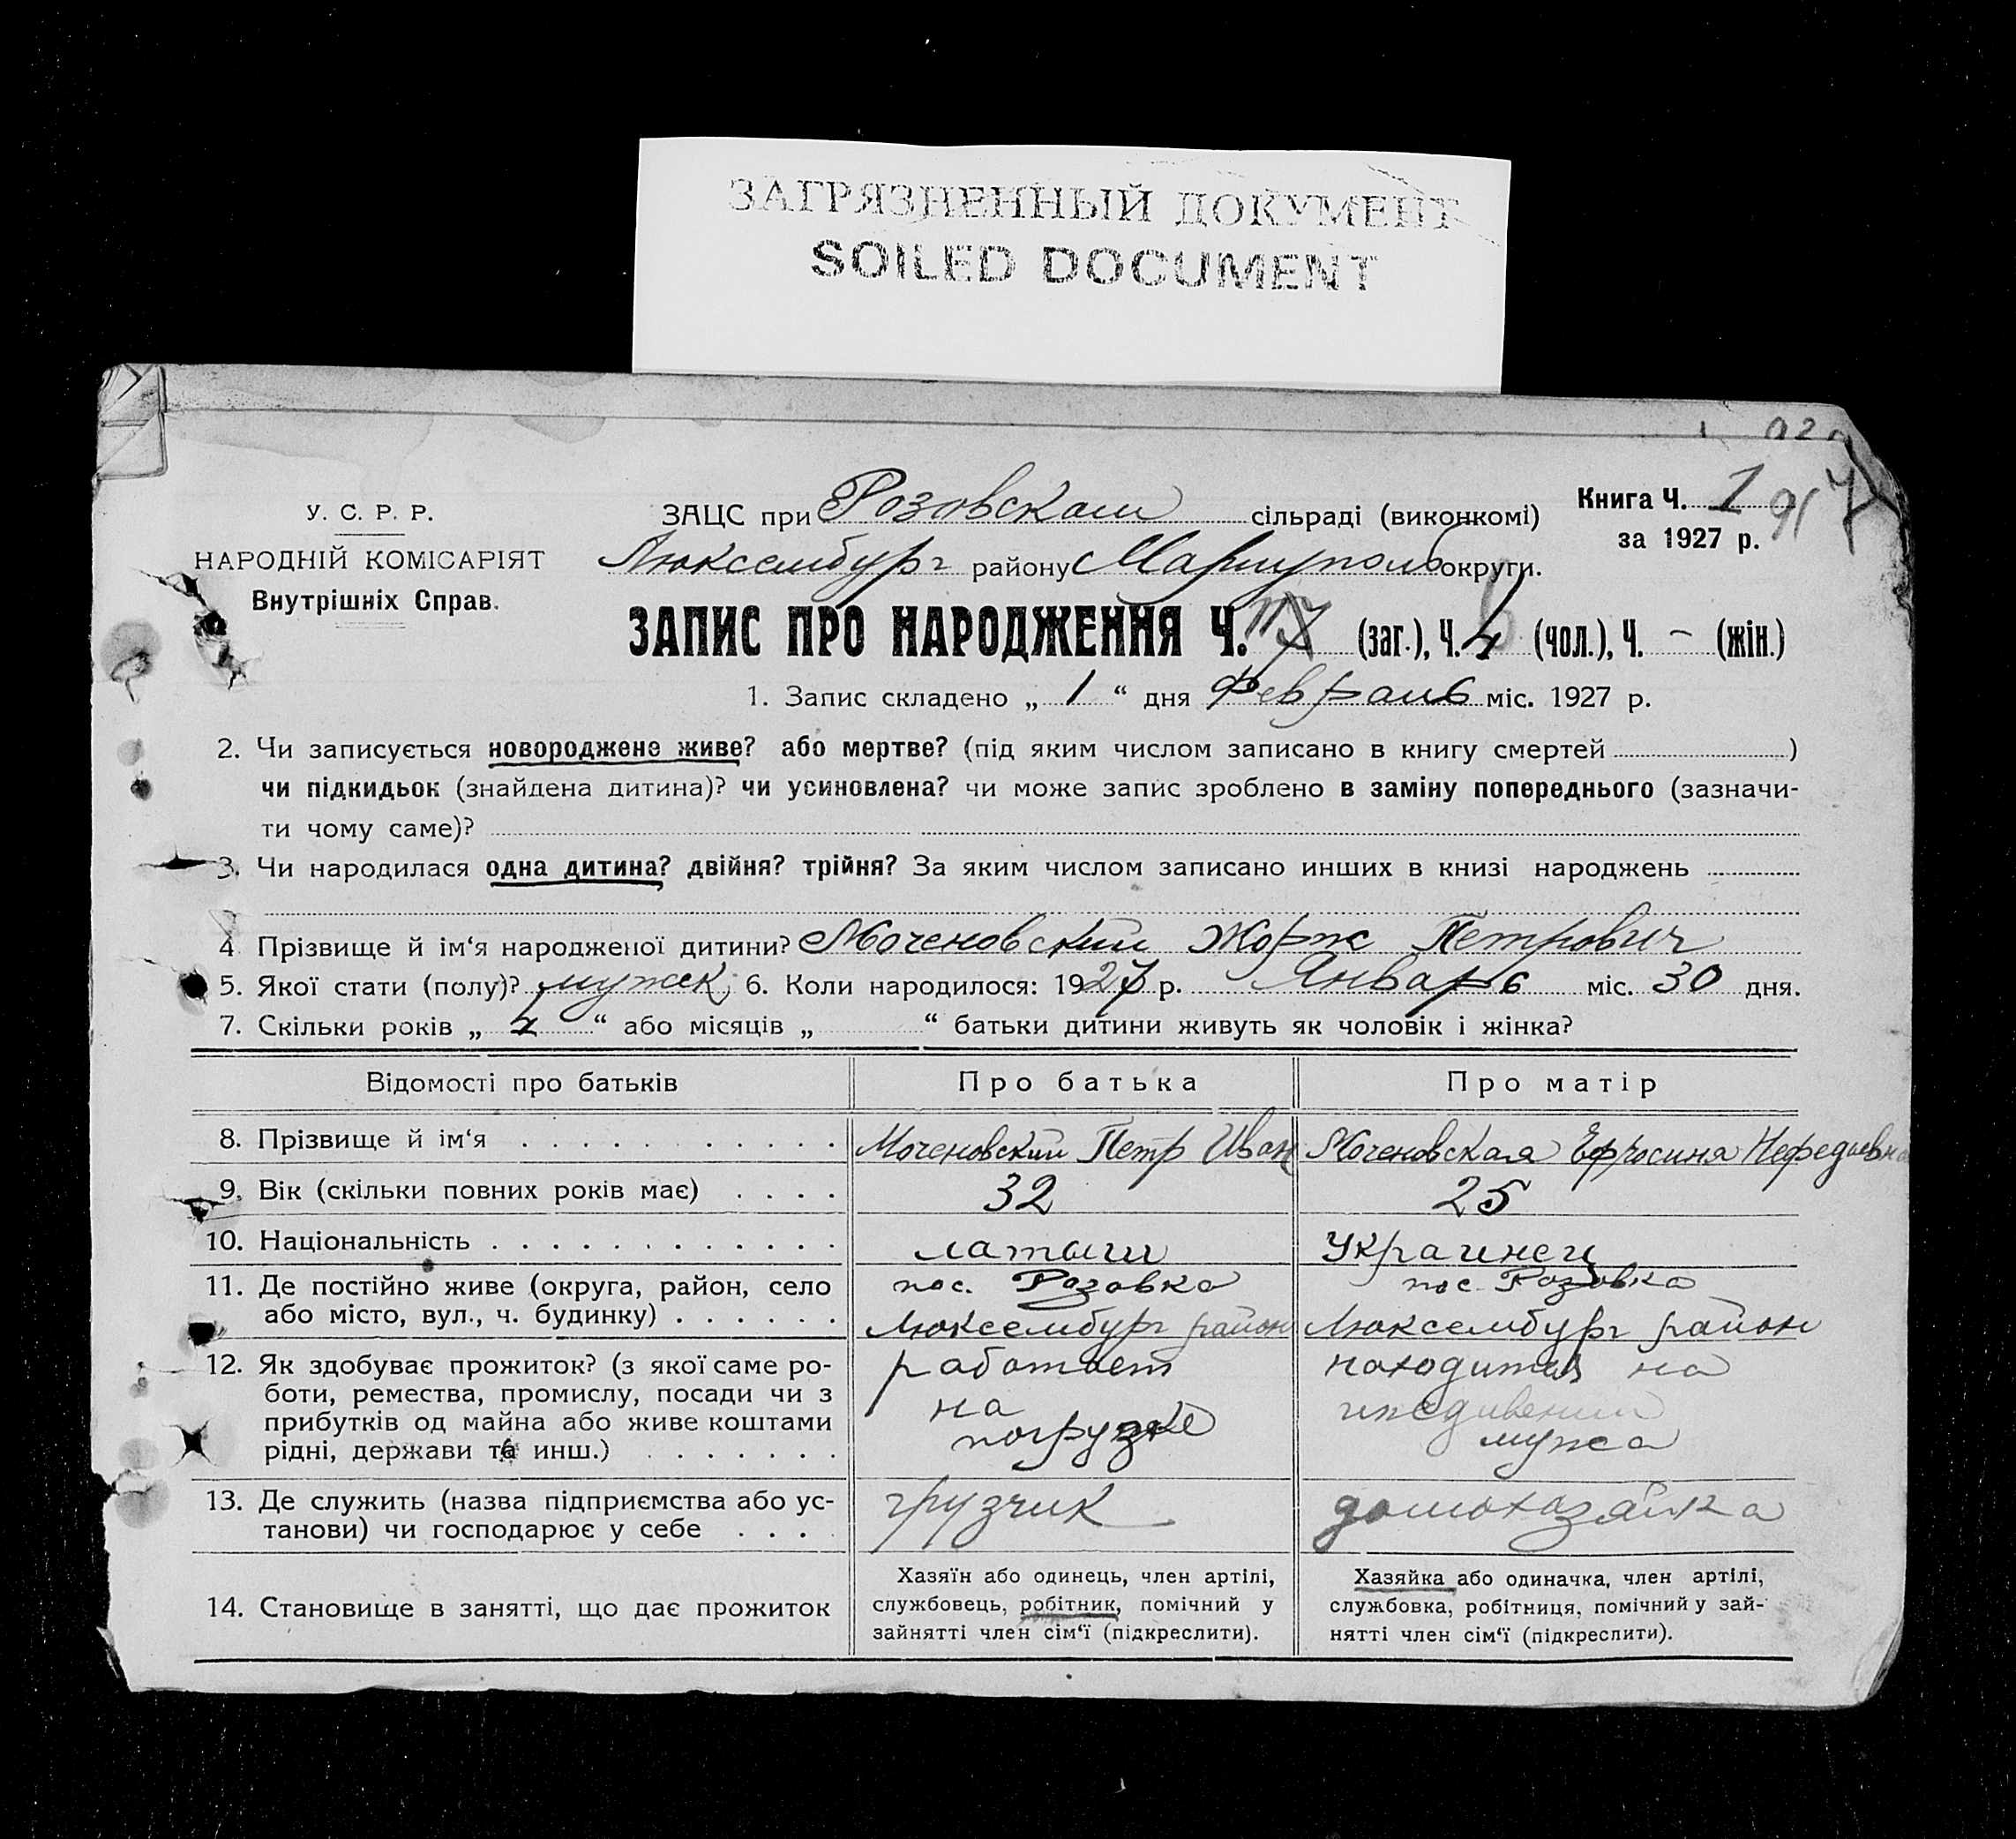 ЗАГРЯЗНЕННЫЙ ДОКУМЕНТ
SOILED DOCUMENT
У. С. Р. Р.
НАРОДНІЙ КОМІСАРІЯТ
Внутрішніх Справ.
ЗАЦС при Розовском сільраді (виконкомі)
Люксембург району Мариуполь округи.
Книга Ч. 1
за 1927 р.
ЗАПИС ПРО НАРОДЖЕННЯ Ч. 7 (заг.), Ч. 4 (чол.), Ч. – (жін.)
1. Запис складено „ 1 “ дня Февраль міс. 1927 р.
2. Чи записується новороджене живе? або мертве? (під яким числом записано в книгу смертей )
чи підкидьок (знайдена дитина)? чи усиновлена? чи може запис зроблено в заміну попереднього (зазначи-
ти чому саме)?
3. Чи народилася одна дитина? двійня? трійня? За яким числом записано инших в книзі народжень
4 Прізвище й ім‘я народженої дитини? Моченовский Жорж Петрович
5. Якої стати (полу)? мужск; 6. Коли народилося: 1927 р. Январь міс. 30 дня.
7. Скільки років „ “ або місяців „ “ батьки дитини живуть як чоловік і жінка?
Відомості про батьків Про батька Про матір
8. Прізвище й ім‘я Моченовский Петр Иван Моченовская Ефросиня Нефедьевна
9. Вік (скільки повних років має) 32 25
10. Національність латыш Украинец
11. Де постійно живе (округа, район, село або місто, вул., ч. будинку)
пос. Розовка
Люксембург район
пос. Розовка
Люксембург район
12. Як здобуває прожиток? (з якої саме ро-
боти, ремества, промислу, посади чи з
прибутків од майна або живе коштами
рідні, держави та инш.)
работает
на
погрузке
находится на
иждивении
мужа
13. Де служить (назва підприємства або ус-
танови) чи господарює у себе
грузчик
домохозяйка
14. Становище в занятті, що дає прожиток
Хазяїн або одинець, член артілі,
службовець, робітник, помічний у
зайнятті член сім‘ї (підкреслити).
Хазяйка або одиначка, член артілі,
службовка, робітниця, помічний у зай-
нятті член сім‘ї (підкреслити).